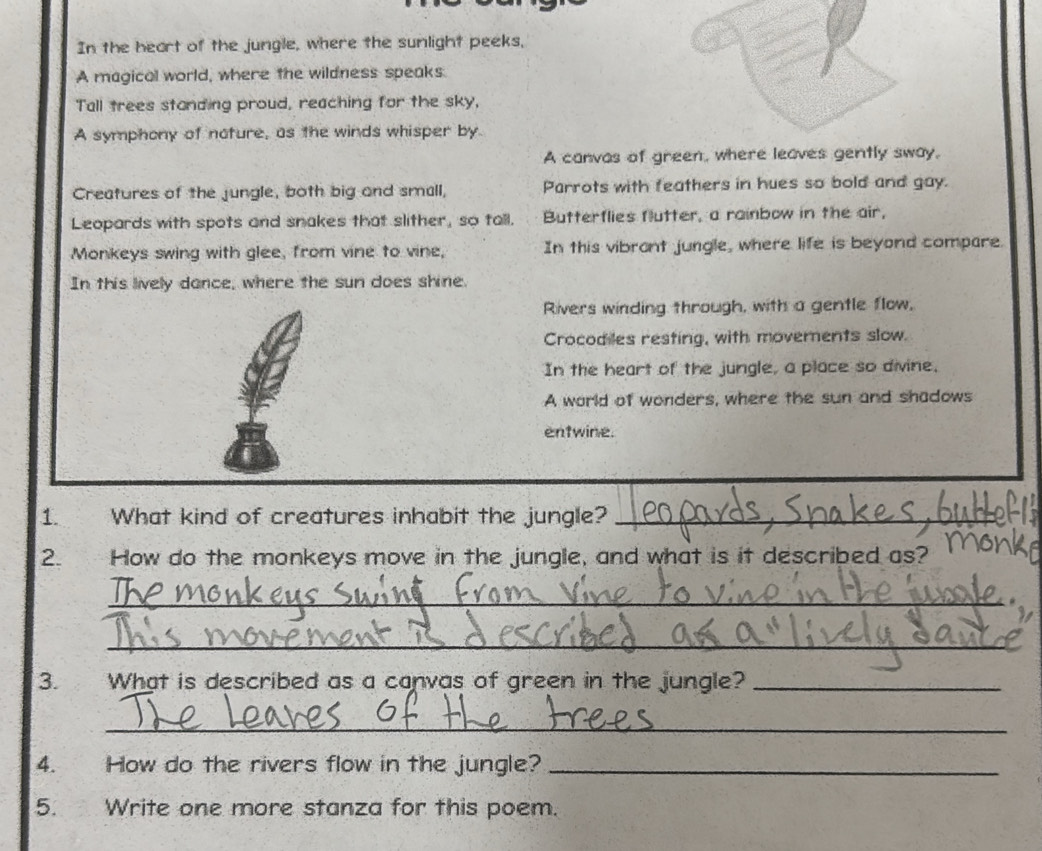 The Jungle
In the heart of the jungle, where the sunlight peeks,
A magical world, where the wildness speaks.
Tall trees standing proud, reaching for the sky,
A symphony of nature, as the winds whisper by.
Creatures of the jungle, both big and small,
Leopards with spots and snakes that slither, so tall.
Monkeys swing with glee, from vine to vine,
In this lively dance, where the sun does shine.
A canvas of green, where leaves gently sway,
Parrots with feathers in hues so bold and gay.
Butterflies flutter, a rainbow in the air,
In this vibrant jungle, where life is beyond compare.
Rivers winding through, with a gentle flow,
Crocodiles resting, with movements slow.
In the heart of the jungle, a place so divine,
A world of wonders, where the sun and shadows
entwine.
1. What kind of creatures inhabit the jungle? leopards, snakes,
2. How do the monkeys move in the jungle, and what is it described as?
The monkeys swing from vine to vine in the jungle.
This movement is described as a "lively dance"
3. What is described as a canvas of green in the jungle?
The Leaves of the trees
4. How do the rivers flow in the jungle?
5. Write one more stanza for this poem.